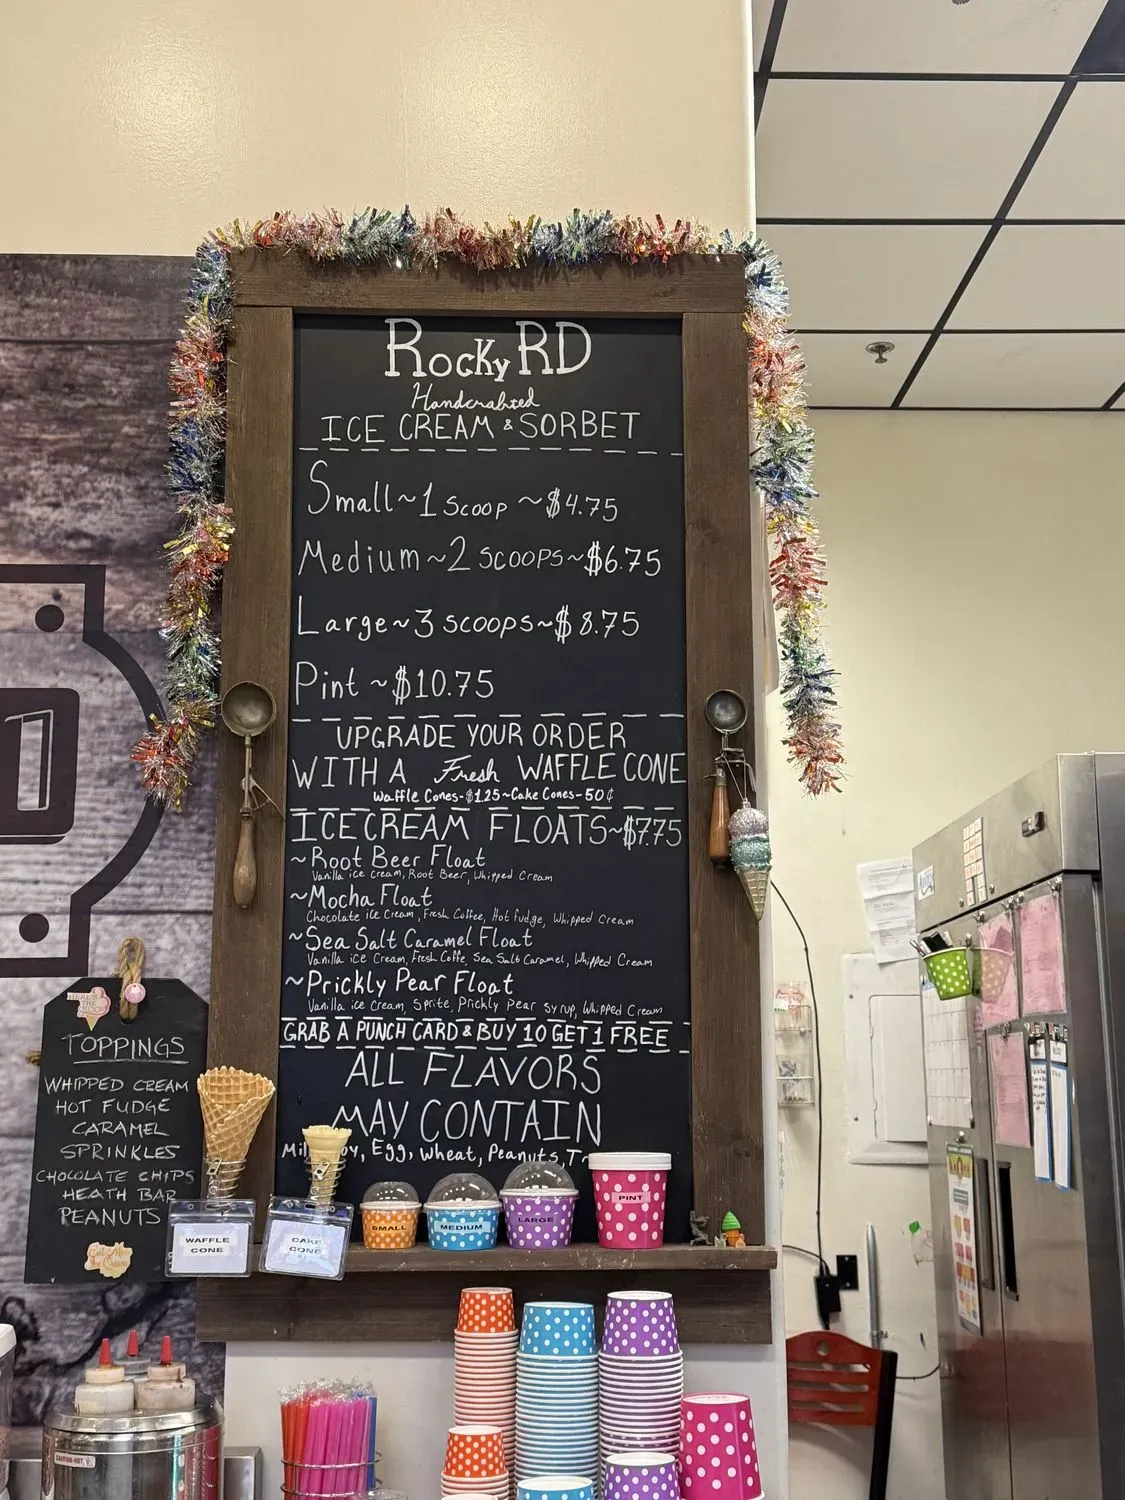 Rocky RD
Handcrafted
ICE CREAM & SORBET
Small ~ 1 scoop ~ $4.75
Medium ~ 2 scoops ~ $6.75
Large ~ 3 scoops ~ $8.75
Pint ~ $10.75
UPGRADE YOUR ORDER
WITH A Fresh WAFFLE CONE
Waffle Cones - $1.25 ~ Cake Cones - 50¢
ICE CREAM FLOATS ~ $7.75
~ Root Beer Float
Vanilla ice cream, Root Beer, Whipped Cream
~ Mocha Float
Chocolate ice Cream, Fresh Coffee, Hot Fudge, Whipped Cream
~ Sea Salt Caramel Float
Vanilla ice Cream, Fresh Coffe, Sea Salt Caramel, Whipped Cream
~ Prickly Pear Float
Vanilla ice Cream, Sprite, Prickly Pear syrup, Whipped Cream
GRAB A PUNCH CARD & BUY 10 GET 1 FREE
ALL FLAVORS
MAY CONTAIN
Egg, Wheat, Peanuts,
HERE'S
THE
SCOOP
TOPPINGS
WHIPPED CREAM
HOT FUDGE
CARAMEL
SPRINKLES
CHOCOLATE CHIPS
HEATH BAR
PEANUTS
WAFFLE
CONE
CAKE
CONE
SMALL
MEDIUM
LARGE
PINT
CAUTION-HOT